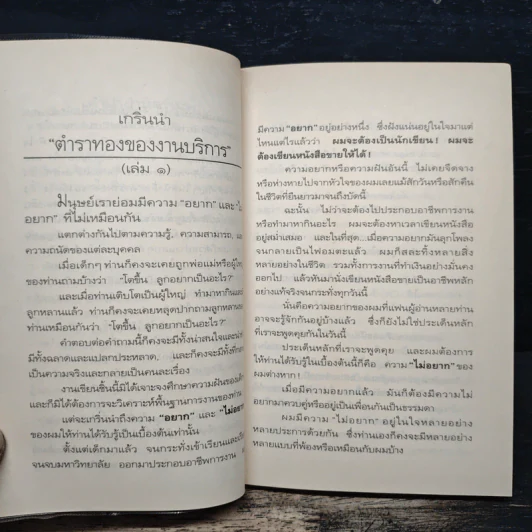 เกริ่นนำ
"ตำราทองของงานบริการ"
(เล่ม ๑)
มนุษย์เราย่อมมีความ "อยาก" และ "ไม่
อยาก" ที่ไม่เหมือนกัน
แตกต่างกันไปตามความรู้, ความสามารถ, และ
ความถนัดของแต่ละบุคคล
เมื่อเด็กๆ ท่านก็คงจะเคยถูกพ่อแม่หรือผู้ใหญ่
ของท่านถามบ้างว่า "โตขึ้น ลูกอยากเป็นอะไร?"
และเมื่อท่านเติบโตเป็นผู้ใหญ่ ทำมาหากิน
ลูกหลานแล้ว ท่านก็คงจะเคยหลุดปากถามลูกหลาน
ท่านเหมือนกันว่า "โตขึ้น ลูกอยากเป็นอะไร?"
คำตอบต่อคำถามนี้ก็คงจะมีทั้งน่าสนใจและน่า
มีทั้งฉลาดและแปลกประหลาด, และก็คงจะมีทั้งที่
เป็นความจริงและกลายเป็นคนละเรื่อง
งานเขียนชิ้นนี้มิได้เจาะจงศึกษาความฝันของเด็ก
และก็มิได้ต้องการจะวิเคราะห์พื้นฐานการงานของท่าน
แต่จะเกริ่นนำถึงความ "อยาก" และ "ไม่อยาก"
ของผมให้ท่านได้รับรู้เป็นเบื้องต้นเท่านั้น
ตั้งแต่เด็กมาแล้ว จนกระทั่งเข้าเรียนและ
จนจบมหาวิทยาลัย ออกมาประกอบอาชีพการงาน
มีความ "อยาก" อยู่อย่างหนึ่ง ซึ่งฝังแน่นอยู่ในใจมาแต่
ไหนแต่ไรแล้วว่า ผมจะต้องเป็นนักเขียน! ผมจะ
ต้องเขียนหนังสือขายให้ได้!
ความอยากหรือความฝันอันนี้ ไม่เคยจืดจาง
หรือห่างหายไปจากหัวใจของผมเลยแม้สักวันหรือสักคืน
ในชีวิตที่ยืนยาวมาจนถึงบัดนี้
ฉะนั้น ไม่ว่าจะต้องไปประกอบอาชีพการงาน
หรือทำมาหากินอะไร ผมจะต้องหาเวลาเขียนหนังสือ
อยู่สม่ำเสมอ และในที่สุด..เมื่อความอยากมันลุกโพลง
จนกลายเป็นไฟอมตะแล้ว ผมก็สละทิ้งหลายสิ่ง
หลายอย่างในชีวิต รวมทั้งการงานที่ทำเงินอย่างมั่นคง
ออกไป แล้วหันมานั่งเขียนหนังสือขายเป็นอาชีพหลัก
อย่างแท้จริงจนกระทั่งทุกวันนี้
นั่นคือความอยากของผมที่แฟนผู้อ่านหลายท่าน
อาจจะรู้จักกันอยู่บ้างแล้ว ซึ่งก็ยังไม่ใช่ประเด็นหลัก
ที่เราจะพูดคุยกันในวันนี้
ประเด็นหลักที่เราจะพูดคุย และผมต้องการ
ให้ท่านได้รับรู้ในเบื้องต้นนี้ก็คือ ความ "ไม่อยาก" ของ
ผมต่างหาก!
เมื่อมีความอยากแล้ว มันก็ต้องมีความไม่
อยากมาควบคู่หรืออยู่เป็นเพื่อนกันเป็นธรรมดา
ผมมีความ "ไม่อยาก" อยู่ในใจหลายอย่าง
หลายประการด้วยกัน ซึ่งท่านเองก็คงจะมีหลายอย่าง
หลายแบบที่พ้องหรือเหมือนกับผมบ้าง